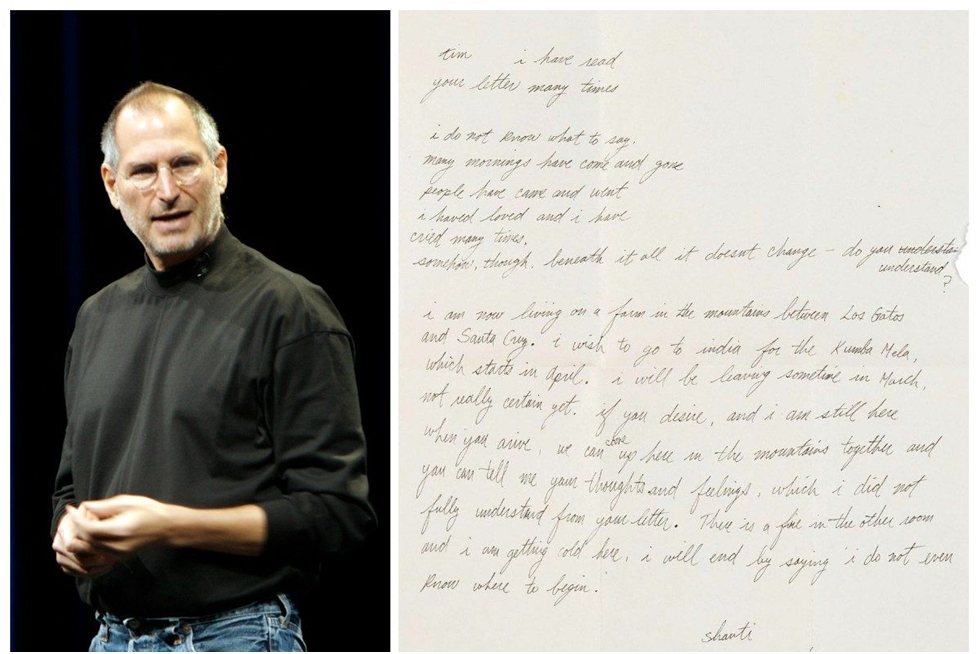 tim i have read
your letter many times
i do not know what to say.
many mornings have come and gone
people have came and went
i haved loved and i have
cried many times.
somehow, though, beneath it all it doesnt change – do you understa
understand
?
i am now living on a farm in the mountains between Los Gatos
and Santa Cruz. i wish to go to india for the Kumba Mela,
which starts in April. i will be leaving sometime in March,
not really certain yet. if you desire, and i am still here
when you arive, we can up here in the mountains together and
you can tell me your thoughts and feelings, which i did not
fully understand from your letter. There is a fire in the other room
and i am getting cold here, i will end by saying i do not even
know where to begin.
shanti